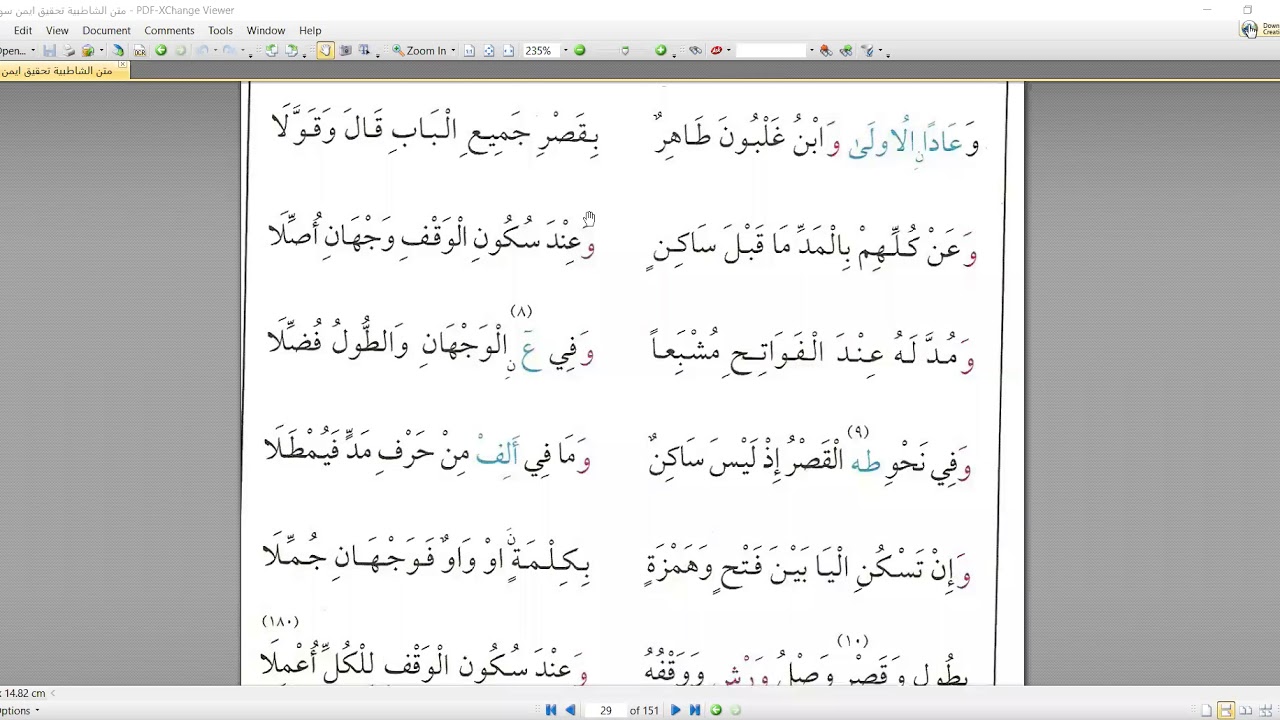 متن الشاطبية تحقيق ايمن سو - PDF-XChange Viewer
Edit View Document Comments Tools Window Help
Down
Creat
Open... Zoom In 235%
متن الشاطبية تحقيق ايمن
وَعَادًا نِ الُاولَىٰ وَابْنُ غَلْبُونَ طَاهِرٌ بِقَصْرِ جَمِيعِ الْبَابِ قَالَ وَقَوَّلَا
وَعَنْ كُلِّهِمْ بِالْمَدِّ مَا قَبْلَ سَاكِنٍ وَعِنْدَ سُكُونِ الْوَقْفِ وَجْهَانِ أُصِّلَا
وَمُدَّ لَهُ عِنْدَ الْفَوَاتِحِ مُشْبِعاً وَفِي عَ نِ الْوَجْهَانِ وَالطُّولُ فُضِّلَا (٨)
وَفِي نَحْوِ طه الْقَصْرُ إِذْ لَيْسَ سَاكِنٌ (٩) وَمَا فِي أَلِفْ مِنْ حَرْفِ مَدٍّ فَيُمْطَلَا
وَإِنْ تَسْكُنِ الْيَا بَيْنَ فَتْحٍ وَهَمْزَةٍ بِكِلْمَةٍ نَ اوْ وَاوٌ فَوَجْهَانِ جُمِّلَا
بِطُولٍ وَقَصْرٍ وَصْلُ وَرْشٍ وَوَقْفُهُ (١٠) وَعِنْدَ سُكُونِ الْوَقْفِ لِلْكُلِّ أُعْمِلَا (١٨٠)
x 14.82 cm
Options 29 of 151